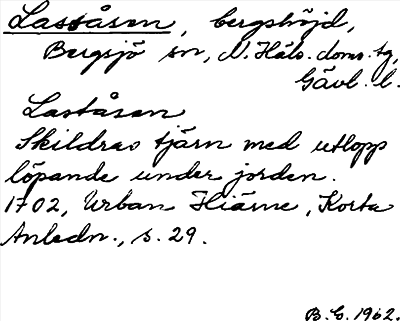 Laståsen, bergshöjd,
Bergsjö sn, N. Häls. doms. tg,
Gävl. l.
Laståsen
Skildras tjärn med utlopp
löpande under jorden.
1702, Urban Hiärne, Korta
Anledn., s. 29.
B. E. 1962.